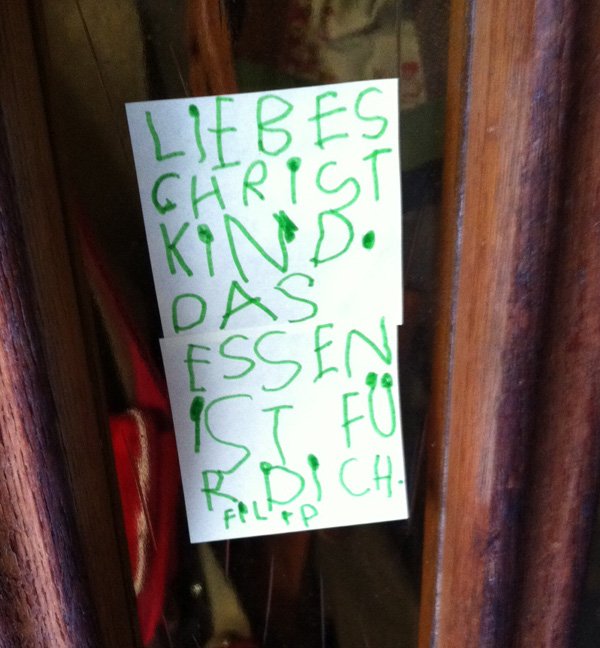 LiEBES
CHRiST
KiND.
DAS
ESSEN
iST FÜ
R DiCH.
FiLiP